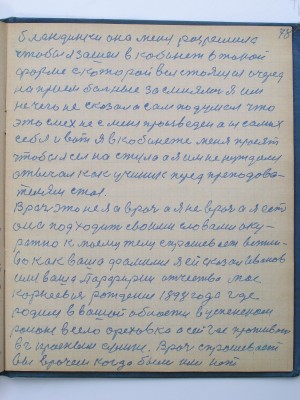 48
блондинки она меня разрешила
чтобы я зашел в кабинет в такой
форме с которой вся стоящая очередь
на прием больные засмеялись я им
нечего не сказал а сам подумал что
это смех не с меня произведен а и самих
себя и вот я в кабинете меня просят
чтобы сел на стул а я им не нуждаюсь
отвечал как ученик пред преподова-
телям стал.
Врач это не я а врач а я не врач а я есть
она подходит своими словами аку-
ратно к моему телу спрашивает вежли-
во как ваша фамилия я ей сказал Иванов
имя ваша Парфирий отчество мое
Корнеевич рождения 1898 года где
родился в вашей области в успенском
районе в село ореховка а сейчас проживаю
в г красный сулине. Врач спрашивает
вы врачем когда были или нет